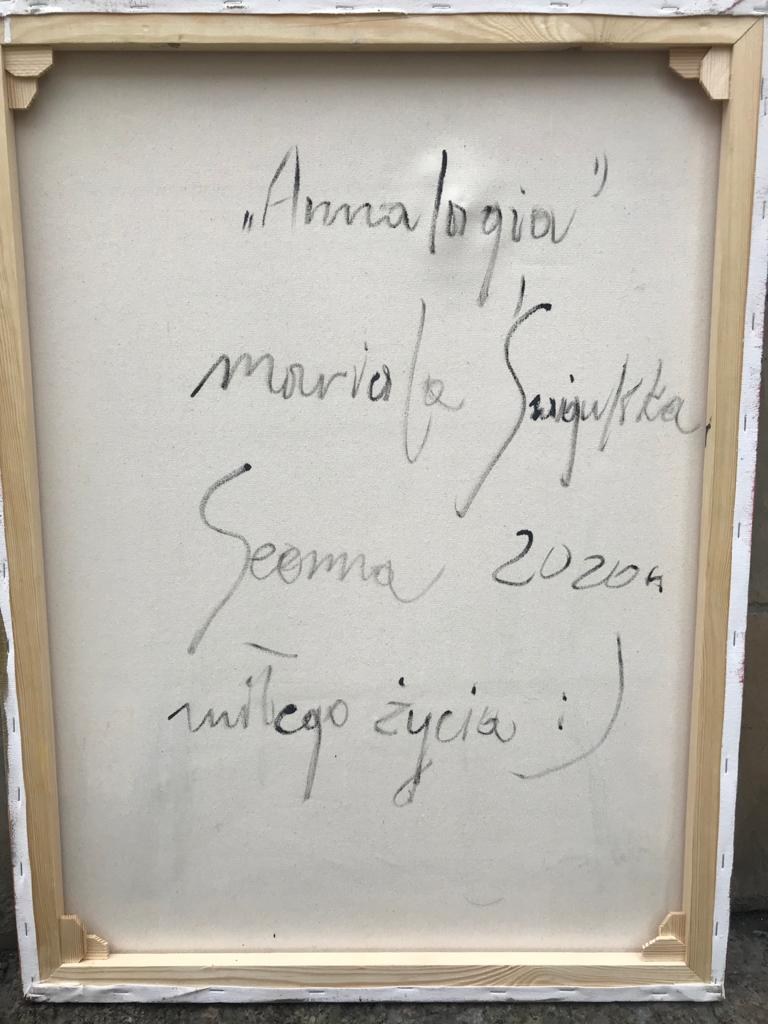 „Annalogia”
mariola Świgulska
2020r
miłego życia :)